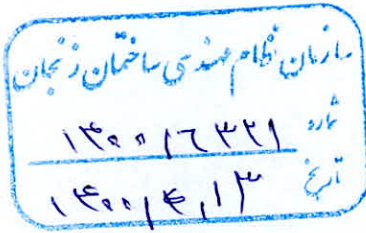 سازمان نظام مهندسی ساختمان زنجان
شماره ۱۴۰۰/۶۳۲۱
تاریخ ۱۴۰۰/۴/۱۳